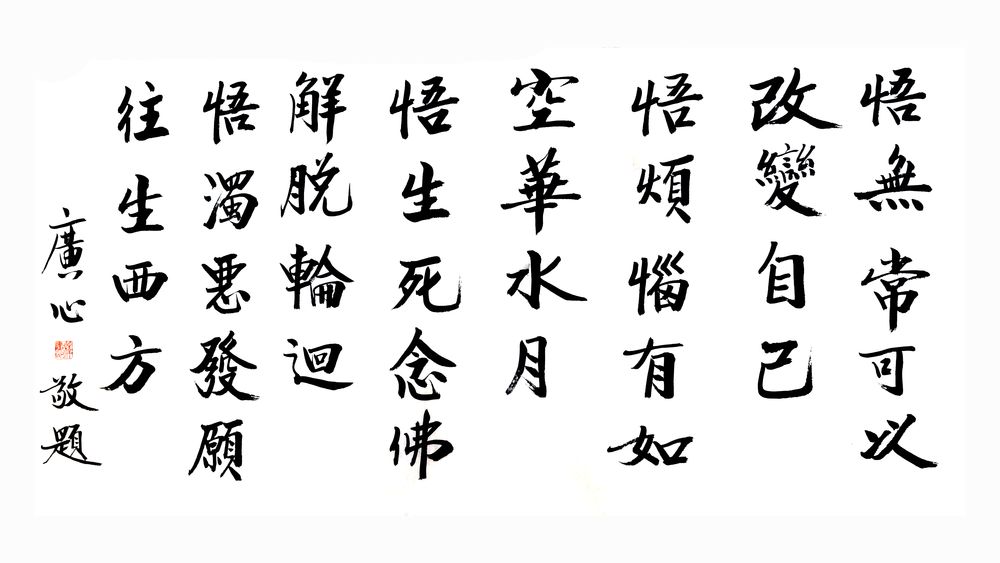 悟無常可以
改變自己
悟煩惱有如
空華水月
悟生死念佛
解脫輪迴
悟濁惡發願
往生西方
廣心敬題